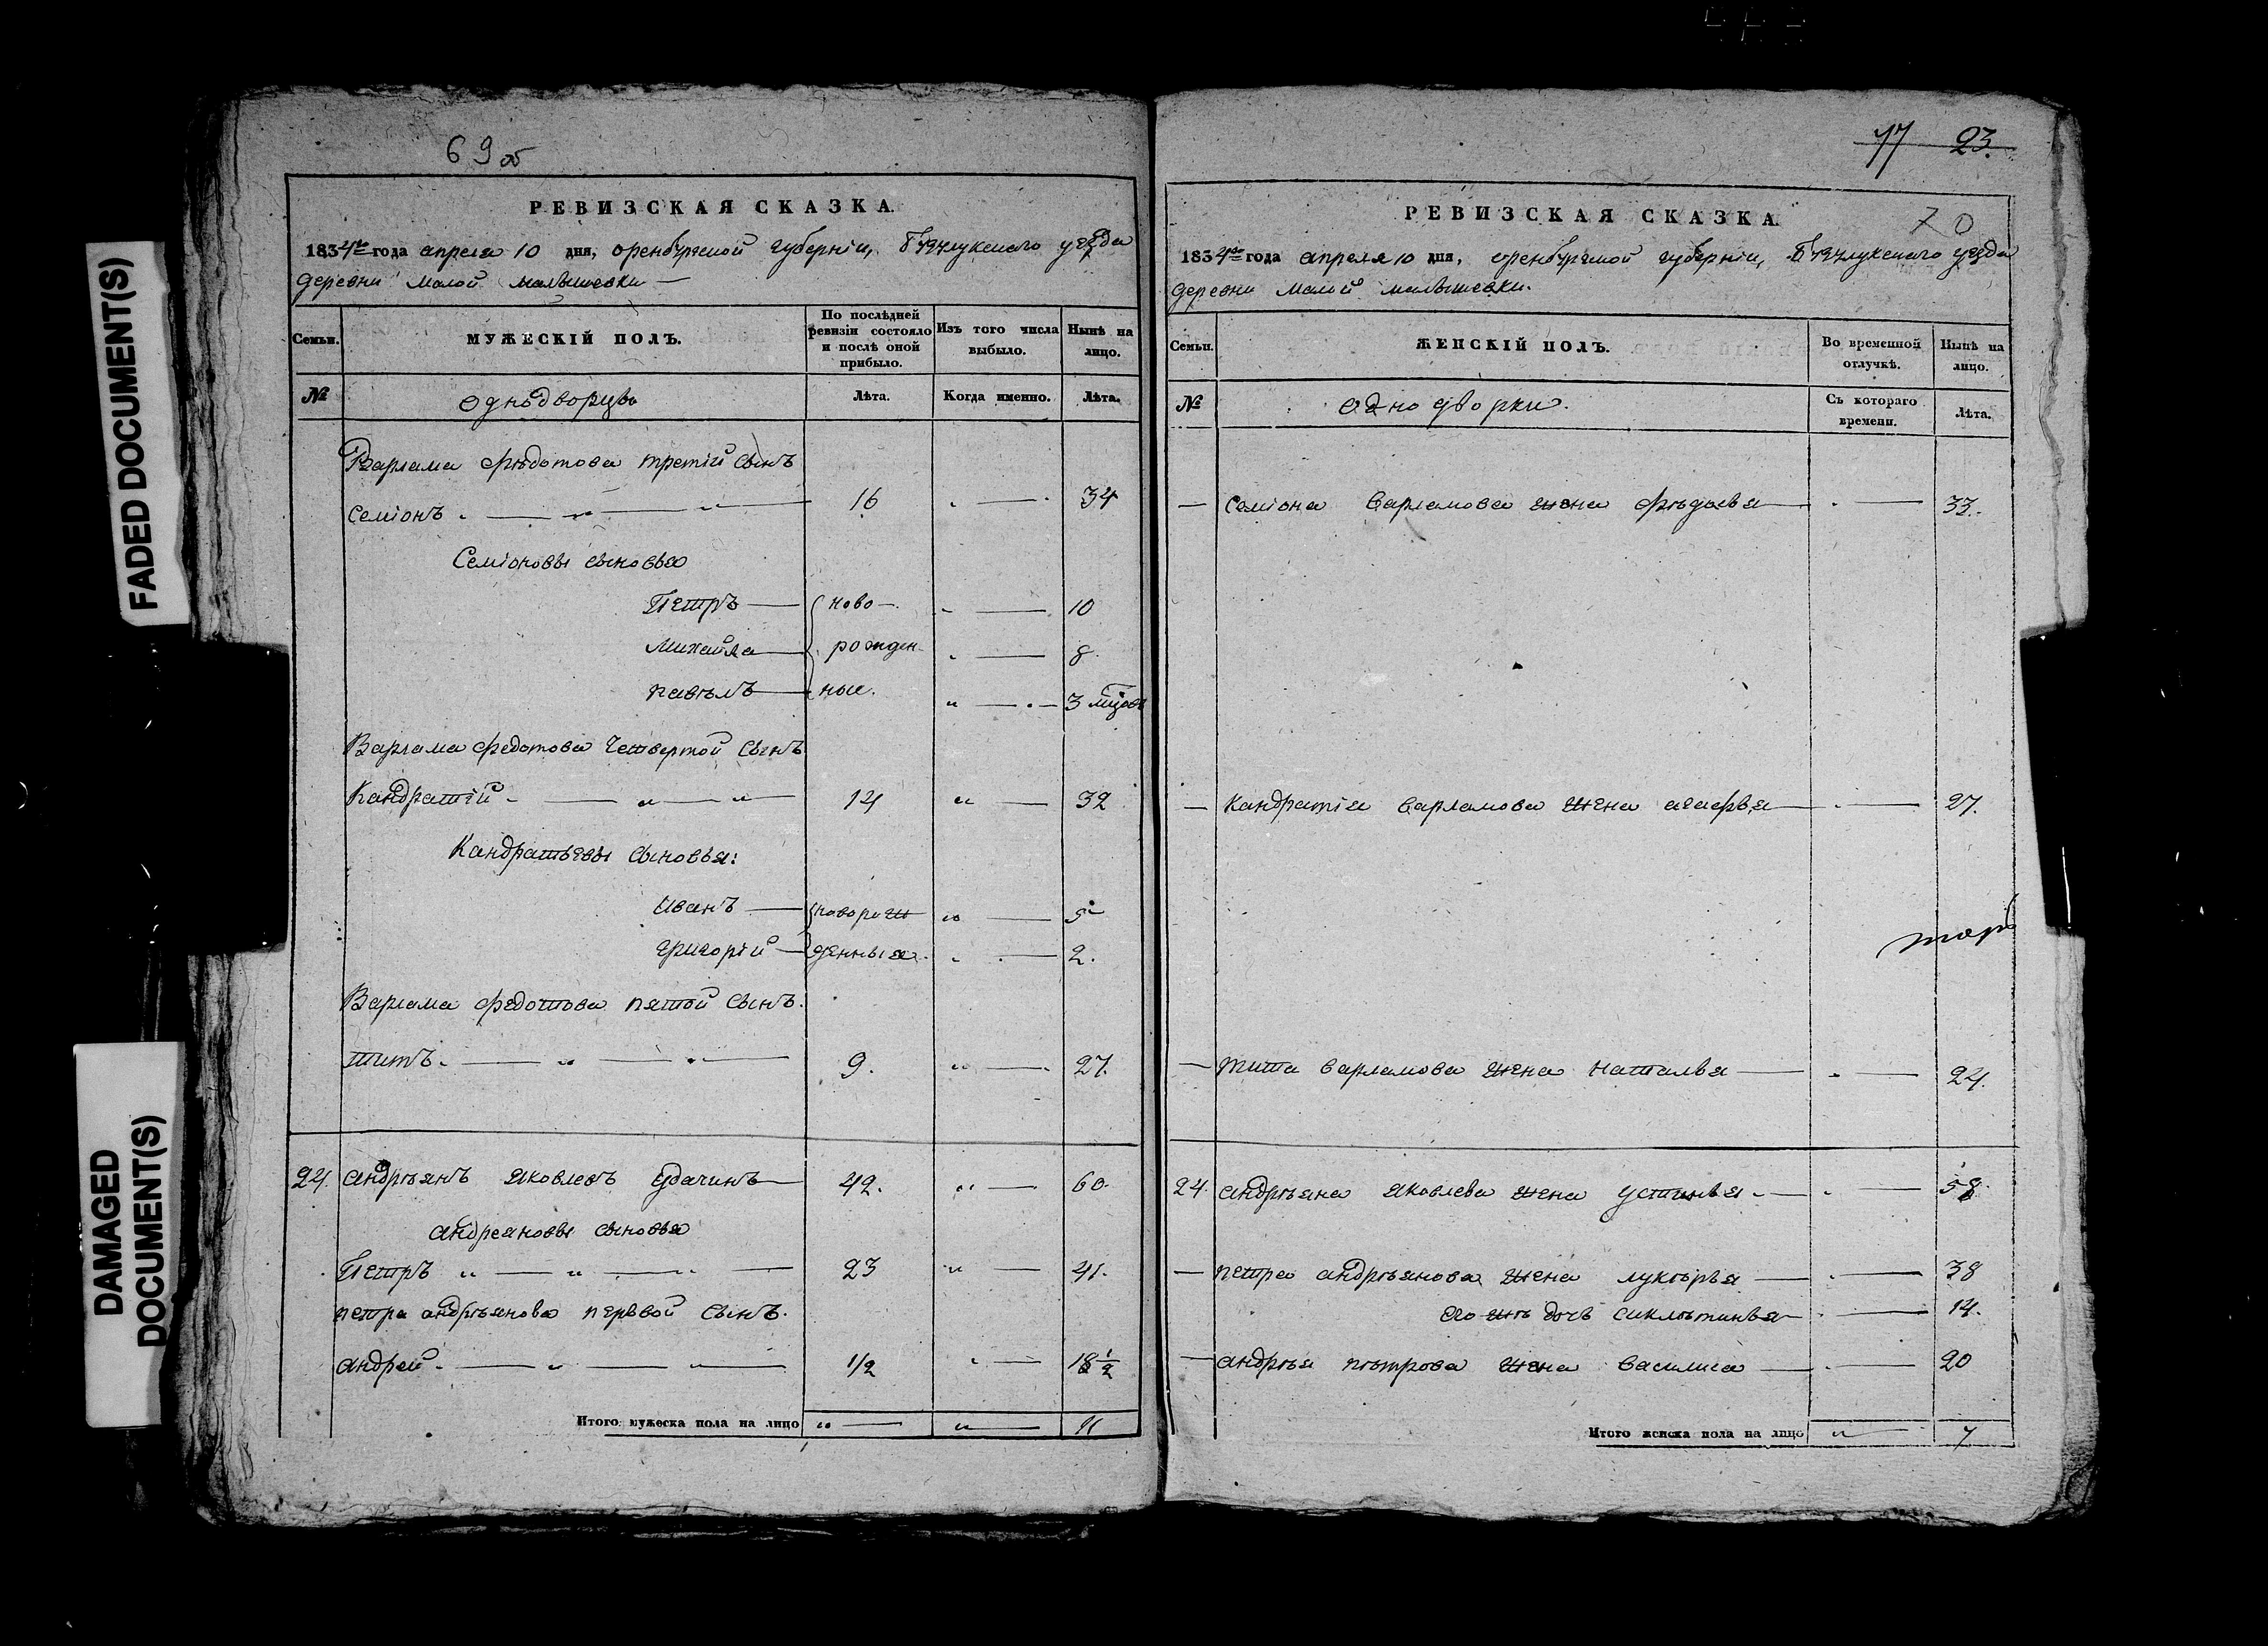 FADED DOCUMENT(S)
DAMAGED
DOCUMENT(S)
69 об
РЕВИЗСКАЯ СКАЗКА.
1834го года апреля 10 дня, оренбургской губернiи, Бузулукскаго уѣзда
деревни малой малышевки
Семьи. МУЖЕСКІЙ ПОЛЪ. По послѣдней ревизіи состояло и послѣ оной прибыло. Изъ того числа выбыло. Нынѣ на лицо.
№ однодворцы Лѣта. Когда именно. Лѣта.
Варлама Фѣдотова третiй сынъ
Семiонъ 16 34
Семiоновы сыновья
Петръ ново- 10
Михайла рожден- 8
павѣлъ ные. 3 мѣсяцов
Варлама федотова четвертой сынъ
Кандратiй 14 32
Кандратьевы сыновья:
Иванъ новорож 5
григорiй денныя 2.
Варлама федотова пятой сынъ.
титъ 9. 27.
24. андрѣянъ яковлевъ Удачинъ 42. 60.
андреяновы сыновья
Петръ 23 41.
петра андрѣянова первой сынъ.
андрей 1/2 18 1/2
Итого мужеска пола на лицо 11
77 23.
70
РЕВИЗСКАЯ СКАЗКА
1834го года апреля 10 дня, оренбургской губернiи, Бузулукскаго уѣзда
деревни малой малышевки.
Семьи. ЖЕНСКІЙ ПОЛЪ. Во временной отлучкѣ. Нынѣ на лицо.
№ однодворки. Съ котораго времени. Лѣта.
Семiона варламова жена фѣдосья 33.
Кандратiя варламова жена агафья 27.
тита варламова жена наталья 24.
24. андрѣяна яковлева жена устинья 58.
петра андрѣянова жена лукѣрья 38
его жъ дочь сиклѣтинья 14.
андрѣя пѣтрова жена василиса 20
Итого женска пола на лицо 7